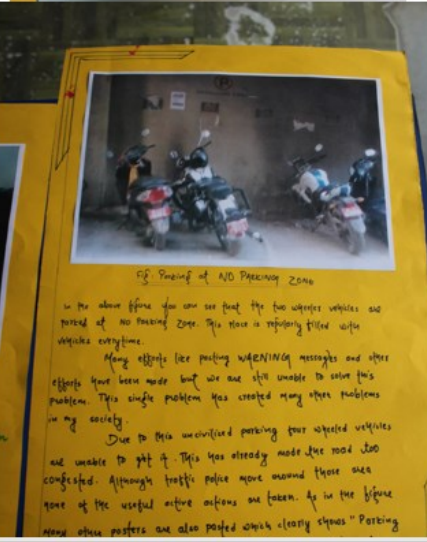 Fig: Parking at NO PARKING ZONE
In the above figure you can see that the two wheeler vehicles are
parked at No Parking Zone. This place is regularly filled with
vehicles everytime.
Many efforts like posting WARNING messages and other
efforts have been made but we are still unable to solve this
problem. This single problem has created many other problems
in my society.
Due to this uncivilized parking four wheeled vehicles
are unable to get it. This has already made the road too
congested. Although traffic police move around those area
none of the useful active actions are taken. As in the figure
many other posters are also posted which clearly shows "Parking